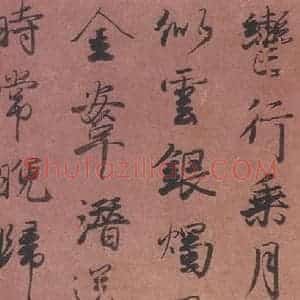 行乗月
似雲銀燭
金潛
時常晚歸
shufazidian.COM